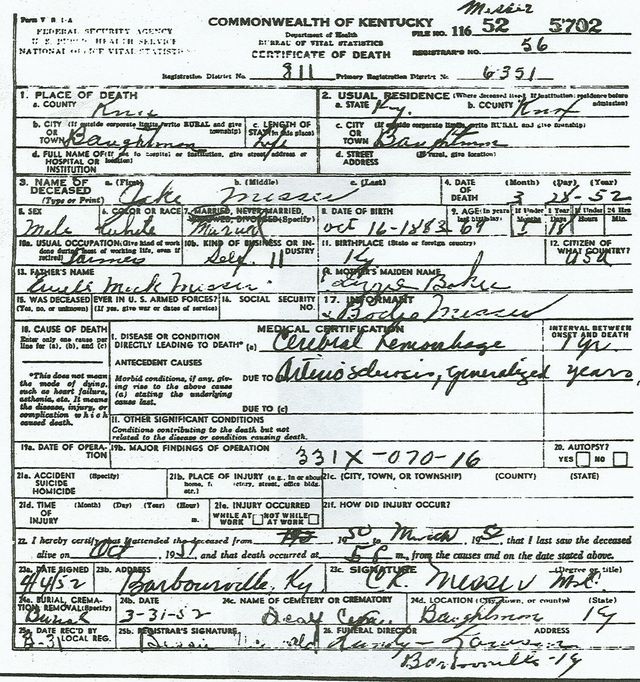 Messer
Form V S 1-A
FEDERAL SECURITY AGENCY
U. S. PUBLIC HEALTH SERVICE
NATIONAL OFFICE VITAL STATISTICS
COMMONWEALTH OF KENTUCKY
Department of Health
BUREAU OF VITAL STATISTICS
CERTIFICATE OF DEATH
FILE NO. 116 52 5702
REGISTRAR'S NO. 56
Registration District No. 811 Primary Registration District No. 6351
1. PLACE OF DEATH
a. COUNTY Knox
b. CITY (If outside corporate limits, write RURAL and give township)
OR
TOWN Baughman
c. LENGTH OF STAY (in this place)
life
d. FULL NAME OF (If not in hospital or institution, give street address or location)
HOSPITAL OR
INSTITUTION
2. USUAL RESIDENCE (Where deceased lived. If institution: residence before admission)
a. STATE Ky. b. COUNTY Knox
c. CITY (If outside corporate limits, write RURAL and give township)
OR
TOWN Baughman
d. STREET (If rural, give location)
ADDRESS
3. NAME OF DECEASED
(Type or Print)
a. (First) b. (Middle) c. (Last)
Jake Messer
4. DATE OF DEATH (Month) (Day) (Year)
3 28-52
5. SEX
Male
6. COLOR OR RACE
White
7. MARRIED, NEVER MARRIED, WIDOWED, DIVORCED (Specify)
8. DATE OF BIRTH
Oct 16-1883
9. AGE (In years last birthday) If Under 1 Year If Under 24 Hrs
Months Days Hours Min.
69 5 18
10a. USUAL OCCUPATION (Give kind of work done during most of working life, even if retired)
Farmer
10b. KIND OF BUSINESS OR INDUSTRY
Self 11
11. BIRTHPLACE (State or foreign country)
Ky
12. CITIZEN OF WHAT COUNTRY?
USA
13. FATHER'S NAME
Meek Messer
MOTHER'S MAIDEN NAME
Baker
15. WAS DECEASED EVER IN U. S. ARMED FORCES?
(Yes, no, or unknown) (If yes, give war or dates of service)
16. SOCIAL SECURITY NO.
17. INFORMANT
Messer
18. CAUSE OF DEATH
Enter only one cause per line for (a), (b), and (c)
*This does not mean the mode of dying, such as heart failure, asthenia, etc. It means the disease, injury, or complication which caused death.
MEDICAL CERTIFICATION
INTERVAL BETWEEN ONSET AND DEATH
I. DISEASE OR CONDITION
DIRECTLY LEADING TO DEATH* (a) Cerebral Hemorrhage 1 yr
ANTECEDENT CAUSES
Morbid conditions, if any, giving rise to the above cause (a) stating the underlying cause last.
DUE TO (b) Arteriosclerosis, generalized years
DUE TO (c)
II. OTHER SIGNIFICANT CONDITIONS
Conditions contributing to the death but not related to the disease or condition causing death.
19a. DATE OF OPERATION
19b. MAJOR FINDINGS OF OPERATION
331X-070-16
20. AUTOPSY?
YES NO
21a. ACCIDENT (Specify)
SUICIDE
HOMICIDE
21b. PLACE OF INJURY (e.g., in or about home, farm, factory, street, office bldg. etc.)
21c. (CITY, TOWN, OR TOWNSHIP) (COUNTY) (STATE)
21d. TIME OF INJURY (Month) (Day) (Year) (Hour)
m.
21e. INJURY OCCURRED
WHILE AT WORK NOT WHILE AT WORK
21f. HOW DID INJURY OCCUR?
22. I hereby certify that I attended the deceased from 1950 to March 1952, that I last saw the deceased
alive on Oct, 1951, and that death occurred at 5 P m., from the causes and on the date stated above.
23a. DATE SIGNED
4/4/52
23b. ADDRESS
Barbourville, Ky
23c. SIGNATURE (Degree or title)
C R Messer M.D.
24a. BURIAL, CREMATION, REMOVAL (Specify)
Burial
24b. DATE
3-31-52
24c. NAME OF CEMETERY OR CREMATORY
24d. LOCATION (City, town, or county) (State)
Baughman Ky
25a. DATE REC'D BY LOCAL REG.
25b. REGISTRAR'S SIGNATURE
26. FUNERAL DIRECTOR ADDRESS
Barbourville-Ky